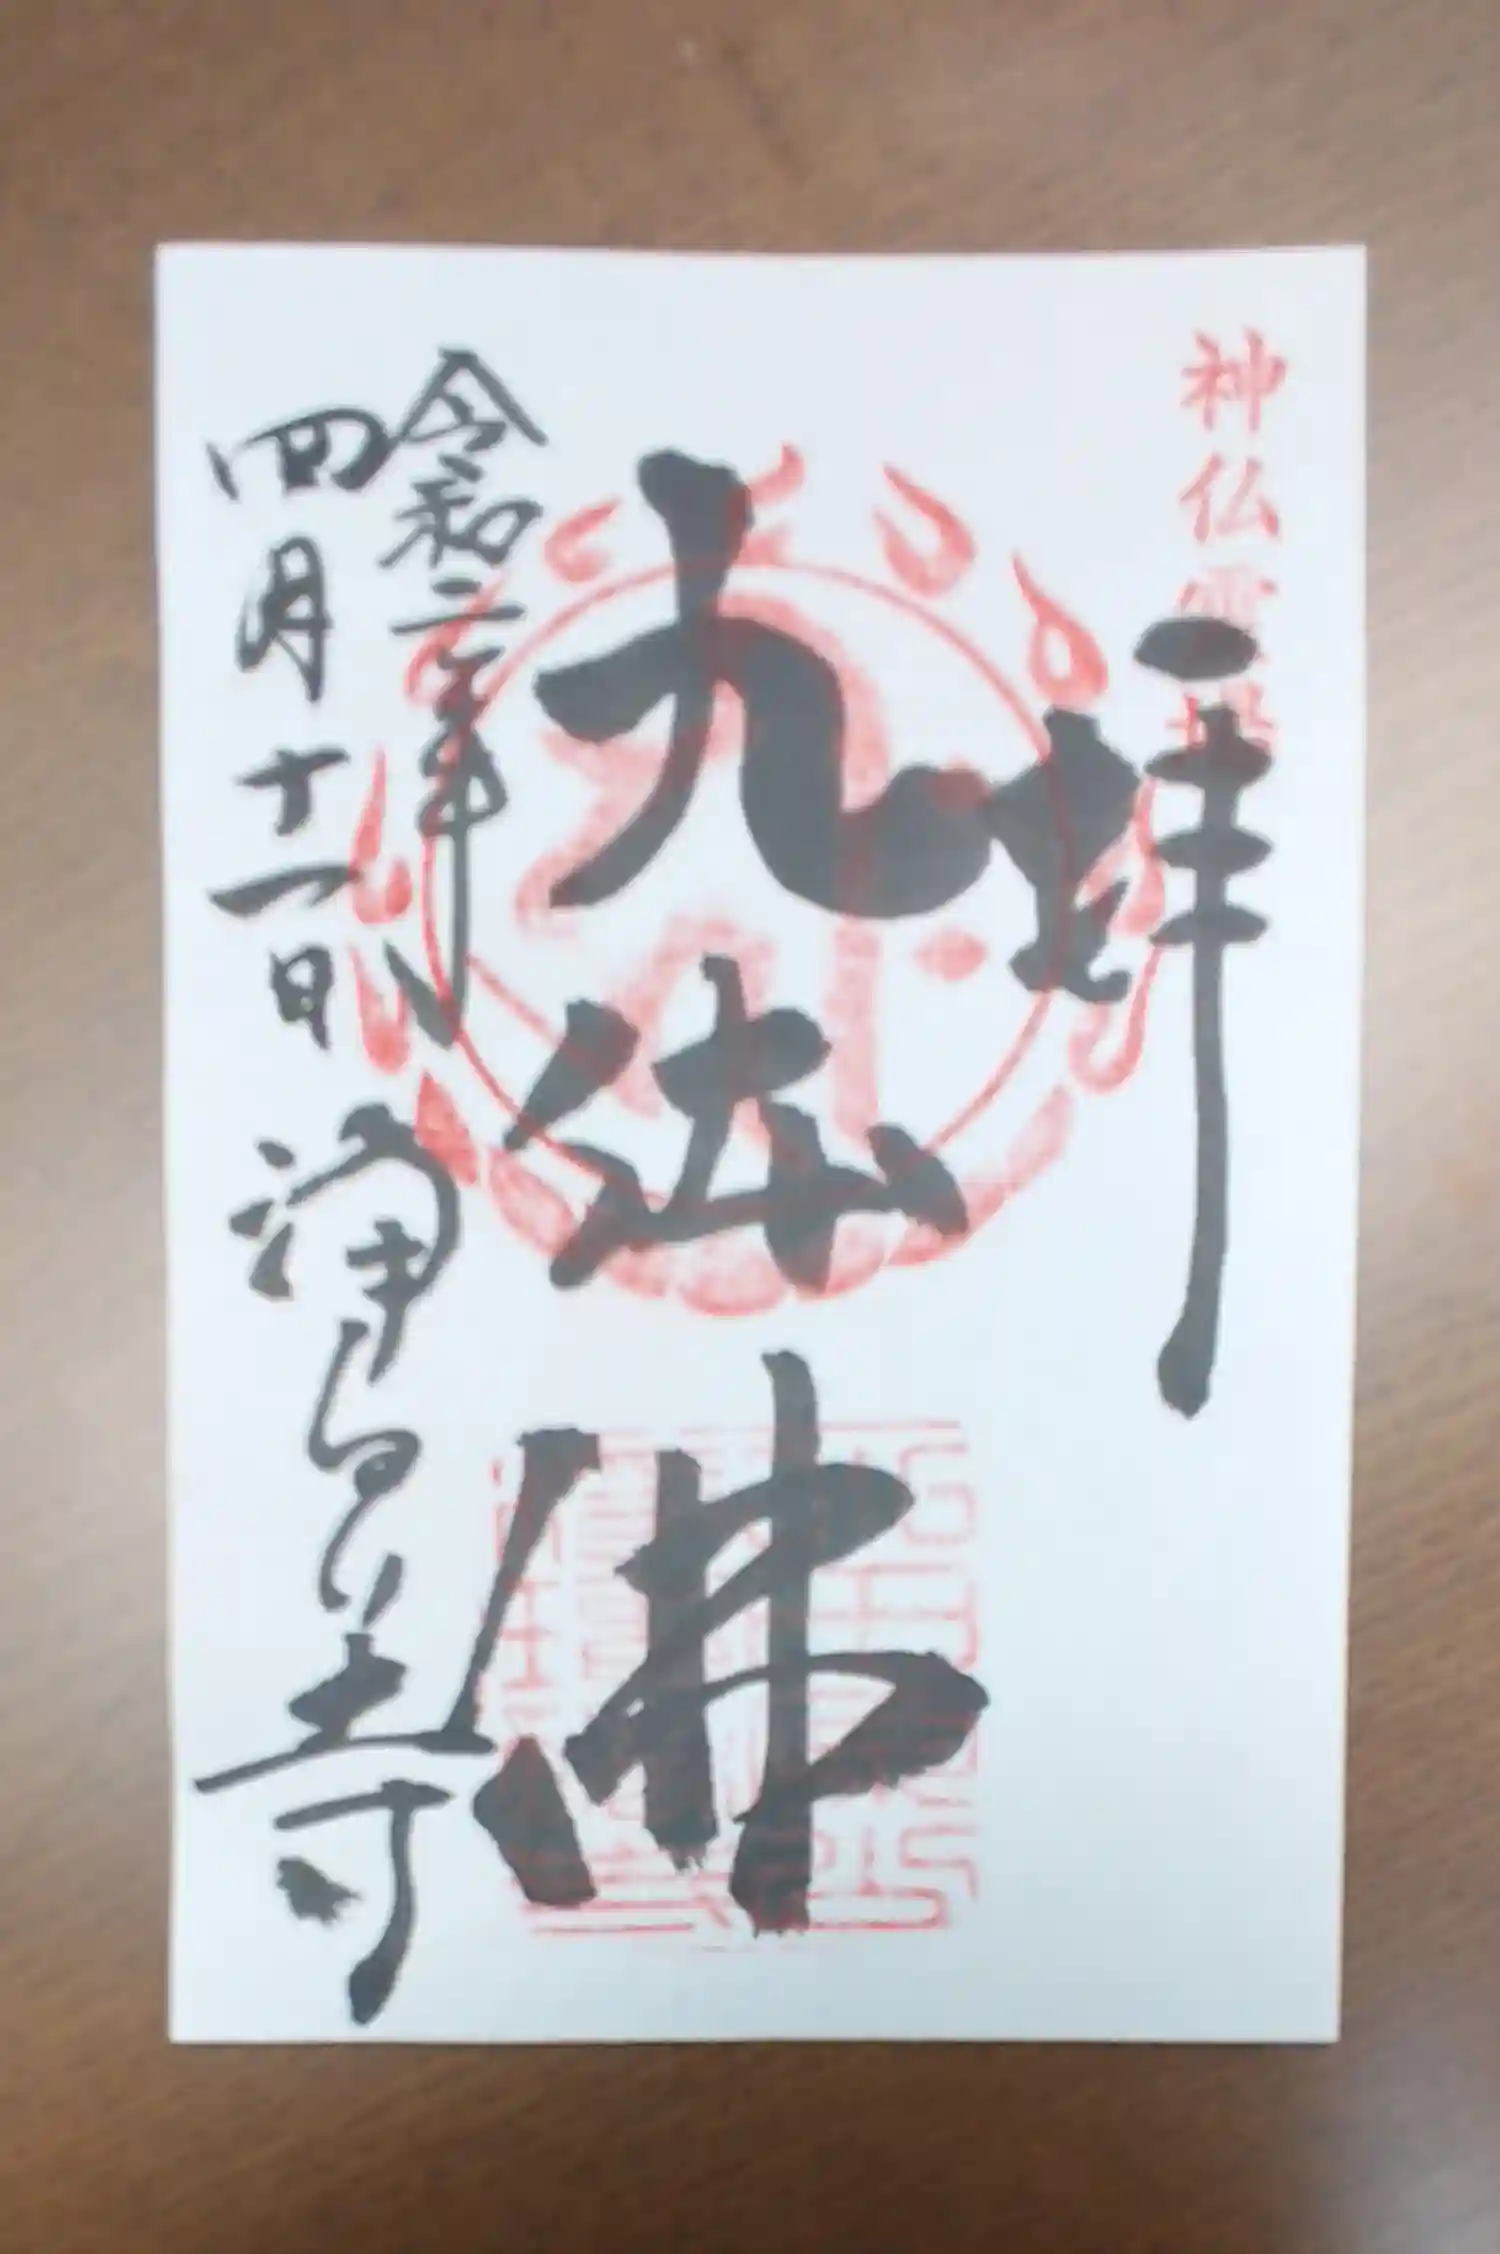 神仏霊場
奉拝
九体佛
令和二年
四月十一日
浄瑠璃寺